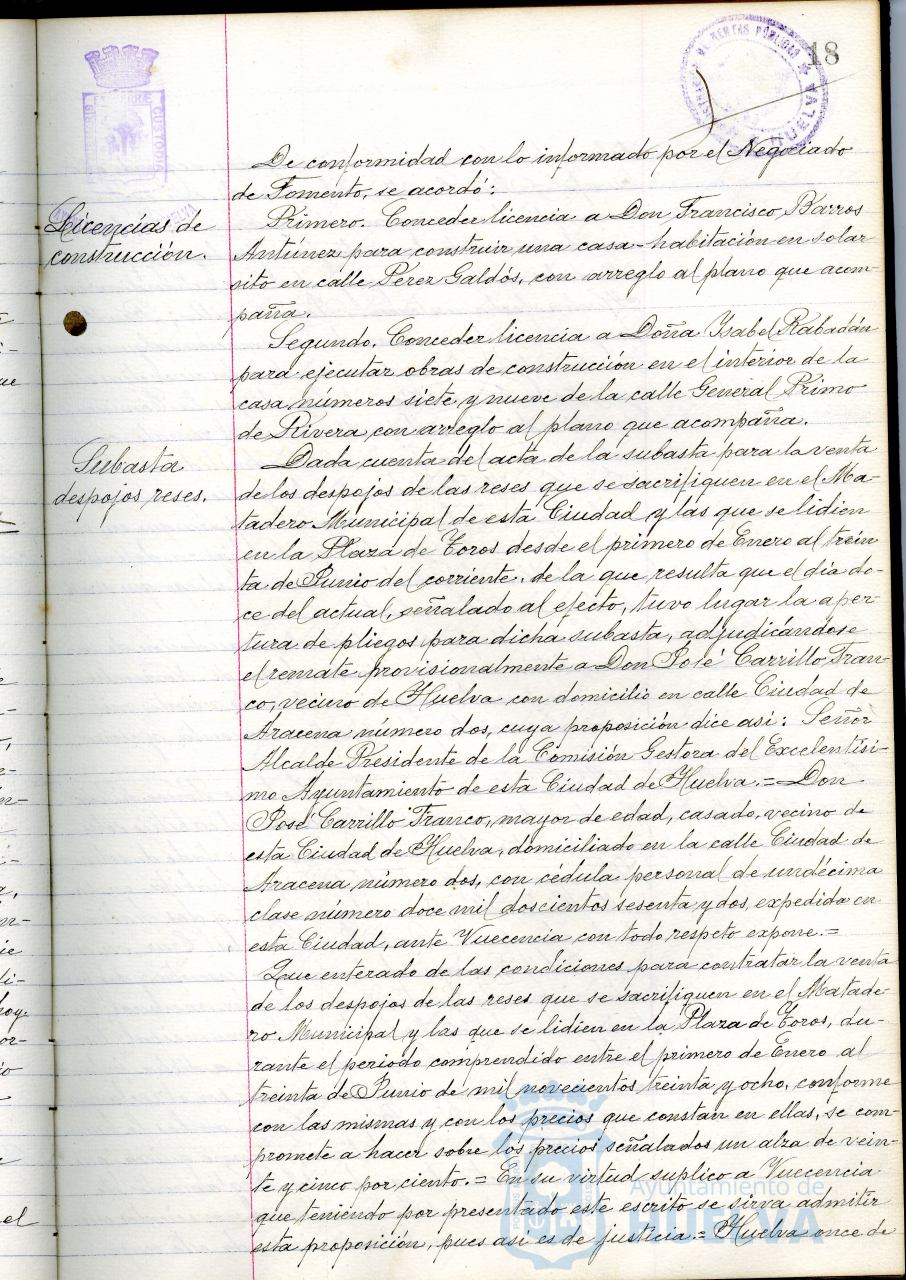 18
De conformidad con lo informado por el Negociado
de Fomento, se acordó:
Licencias de
construcción.
Primero. Conceder licencia a Don Francisco Barros
Antúnez para construir una casa-habitación en solar
sito en calle Pérez Galdós, con arreglo al plano que acom-
paña.
Segundo. Conceder licencia a Doña Isabel Rabadán
para ejecutar obras de construcción en el interior de la
casa números siete y nueve de la calle General Primo
de Rivera con arreglo al plano que acompaña.
Subasta
despojos reses.
Dada cuenta del acta de la subasta para la venta
de los despojos de las reses que se sacrifiquen en el Ma-
tadero Municipal de esta Ciudad y las que se lidien
en la Plaza de Toros desde el primero de Enero al trein
ta de Junio del corriente, de la que resulta que el día do-
ce del actual, señalado al efecto, tuvo lugar la aper-
tura de pliegos para dicha subasta, adjudicándose
el remate provisionalmente a Don José Carrillo Fran-
co, vecino de Huelva con domicilio en calle Ciudad de
Aracena número dos, cuya proposición dice así: Señor
Alcalde Presidente de la Comisión Gestora del Excelentísi-
mo Ayuntamiento de esta Ciudad de Huelva.= Don
José Carrillo Franco, mayor de edad, casado, vecino de
esta Ciudad de Huelva, domiciliado en la calle Ciudad de
Aracena número dos, con cédula personal de undécima
clase número doce mil doscientos sesenta y dos, expedida en
esta Ciudad, ante Vuecencia con todo respeto expone.=
Que enterado de las condiciones para contratar la venta
de los despojos de las reses que se sacrifiquen en el Matade-
ro Municipal y las que se lidien en la Plaza de Toros, du-
rante el periodo comprendido entre el primero de Enero al
treinta de Junio de mil novecientos treinta y ocho, conforme
con las mismas y con los precios que constan en ellas, se com
promete a hacer sobre los precios señalados un alza de vein-
te y cinco por ciento.= En su virtud suplico a Vuecencia
que teniendo por presentado este escrito se sirva admitir
esta proposición, pues así es de justicia.= Huelva once de
Ayuntamiento de
HUELVA